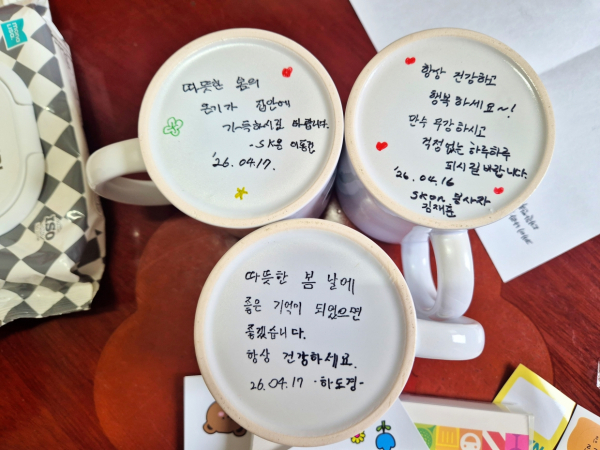 따뜻한 봄의
온기가 집안에
가득하시길 바랍니다.
'26.04.17.
항상 건강하고
행복하세요~!
만수무강하시고
걱정없는 하루하루
되시길 바랍니다.
'26.04.16
SKon 봉사자
따뜻한 봄 날에
좋은 기억이 되었으면
좋겠습니다.
항상 건강하세요.
26.04.17 -하도경-
ISO